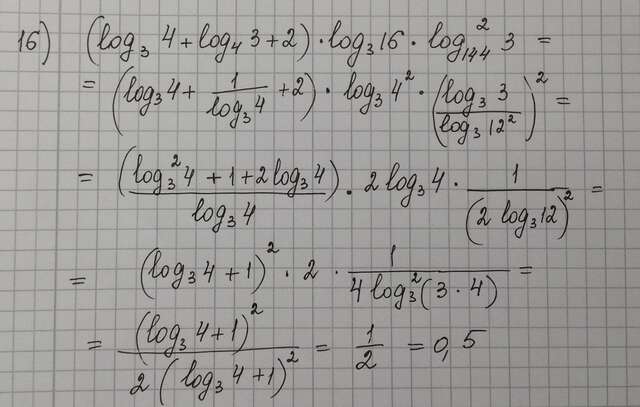 16) (log₃ 4 + log₄ 3 + 2) · log₃ 16 · log²₁₄₄ 3 =
= (log₃ 4 + 1/(log₃ 4) + 2) · log₃ 4² · ((log₃ 3)/(log₃ 12²))² =
= (log₃² 4 + 1 + 2 log₃ 4)/(log₃ 4) · 2 log₃ 4 · 1/(2 log₃ 12)² =
= (log₃ 4 + 1)² · 2 · 1/(4 log₃² (3 · 4)) =
= (log₃ 4 + 1)²/(2 (log₃ 4 + 1)²) = 1/2 = 0,5